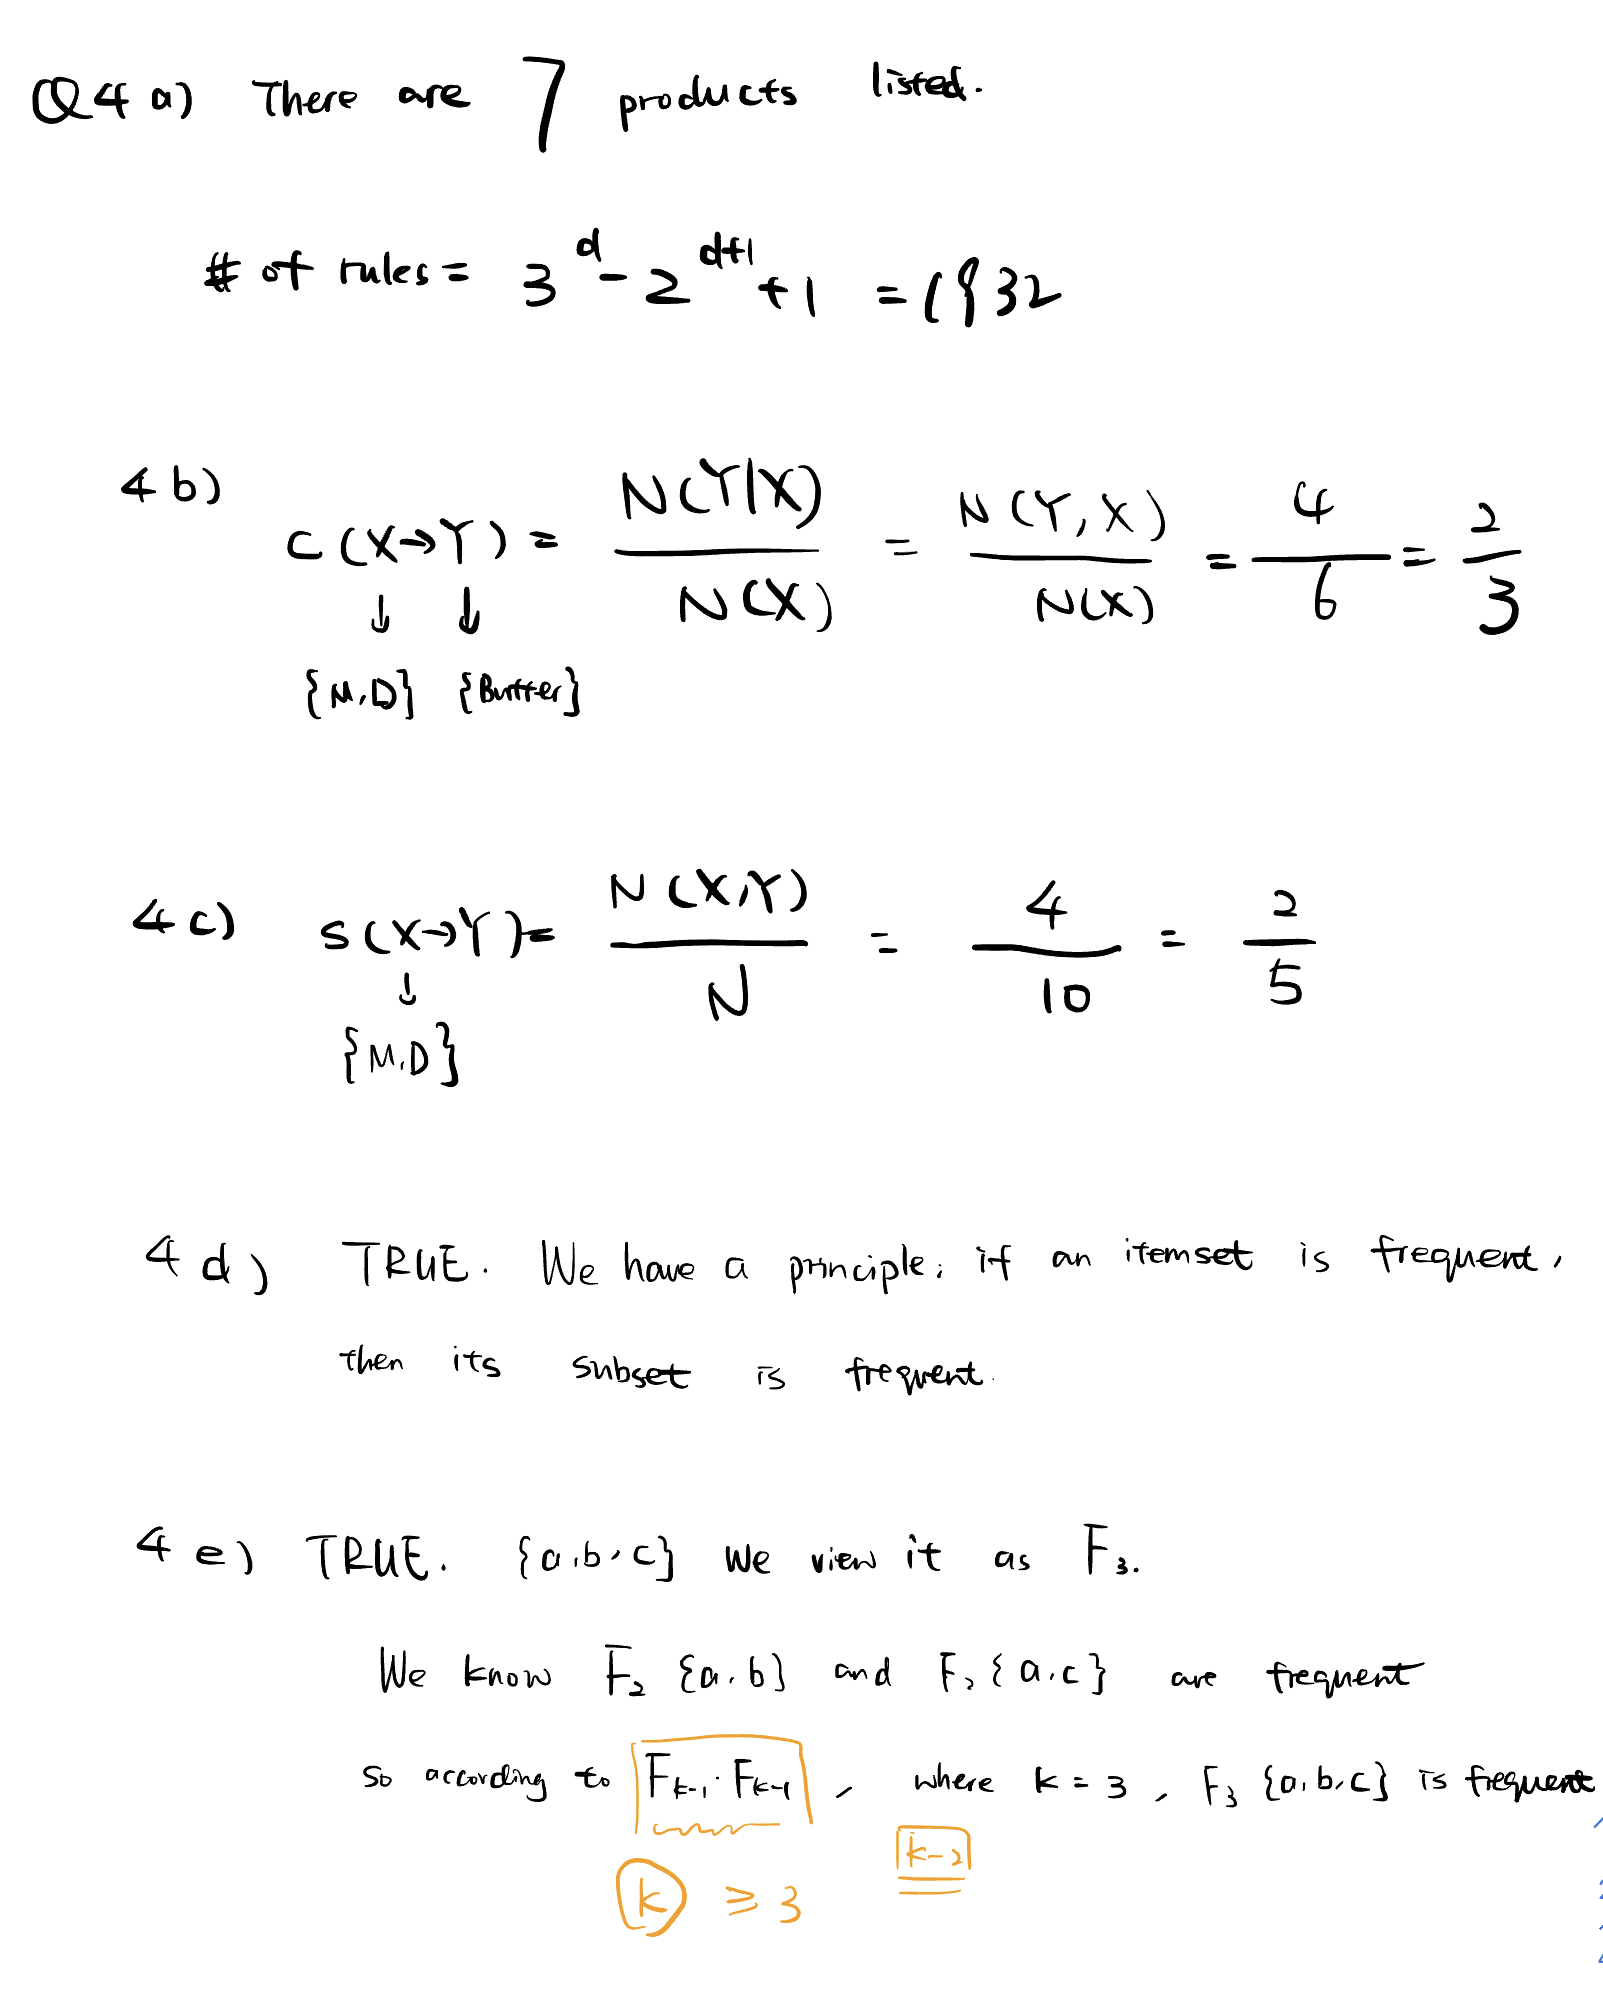 Q4 a) There are 7 products listed.
# of rules = 3^d - 2^{d+1} + 1 = 1932
4 b) C(X→Y) = N(Y|X) / N(X) = N(Y,X) / N(X) = 4/6 = 2/3
↓ ↓
{M,D} {Butter}
4 c) S(X→Y) = N(X,Y) / N = 4/10 = 2/5
↓
{M,D}
4 d) TRUE. We have a principle; if an itemset is frequent,
then its subset is frequent.
4 e) TRUE. {a,b,c} we view it as F₃.
We know F₂ {a,b} and F₂ {a,c} are frequent
so according to F_{k-1} · F_{k-1}, where k = 3, F₃ {a,b,c} is frequent
k-2
k ≥ 3